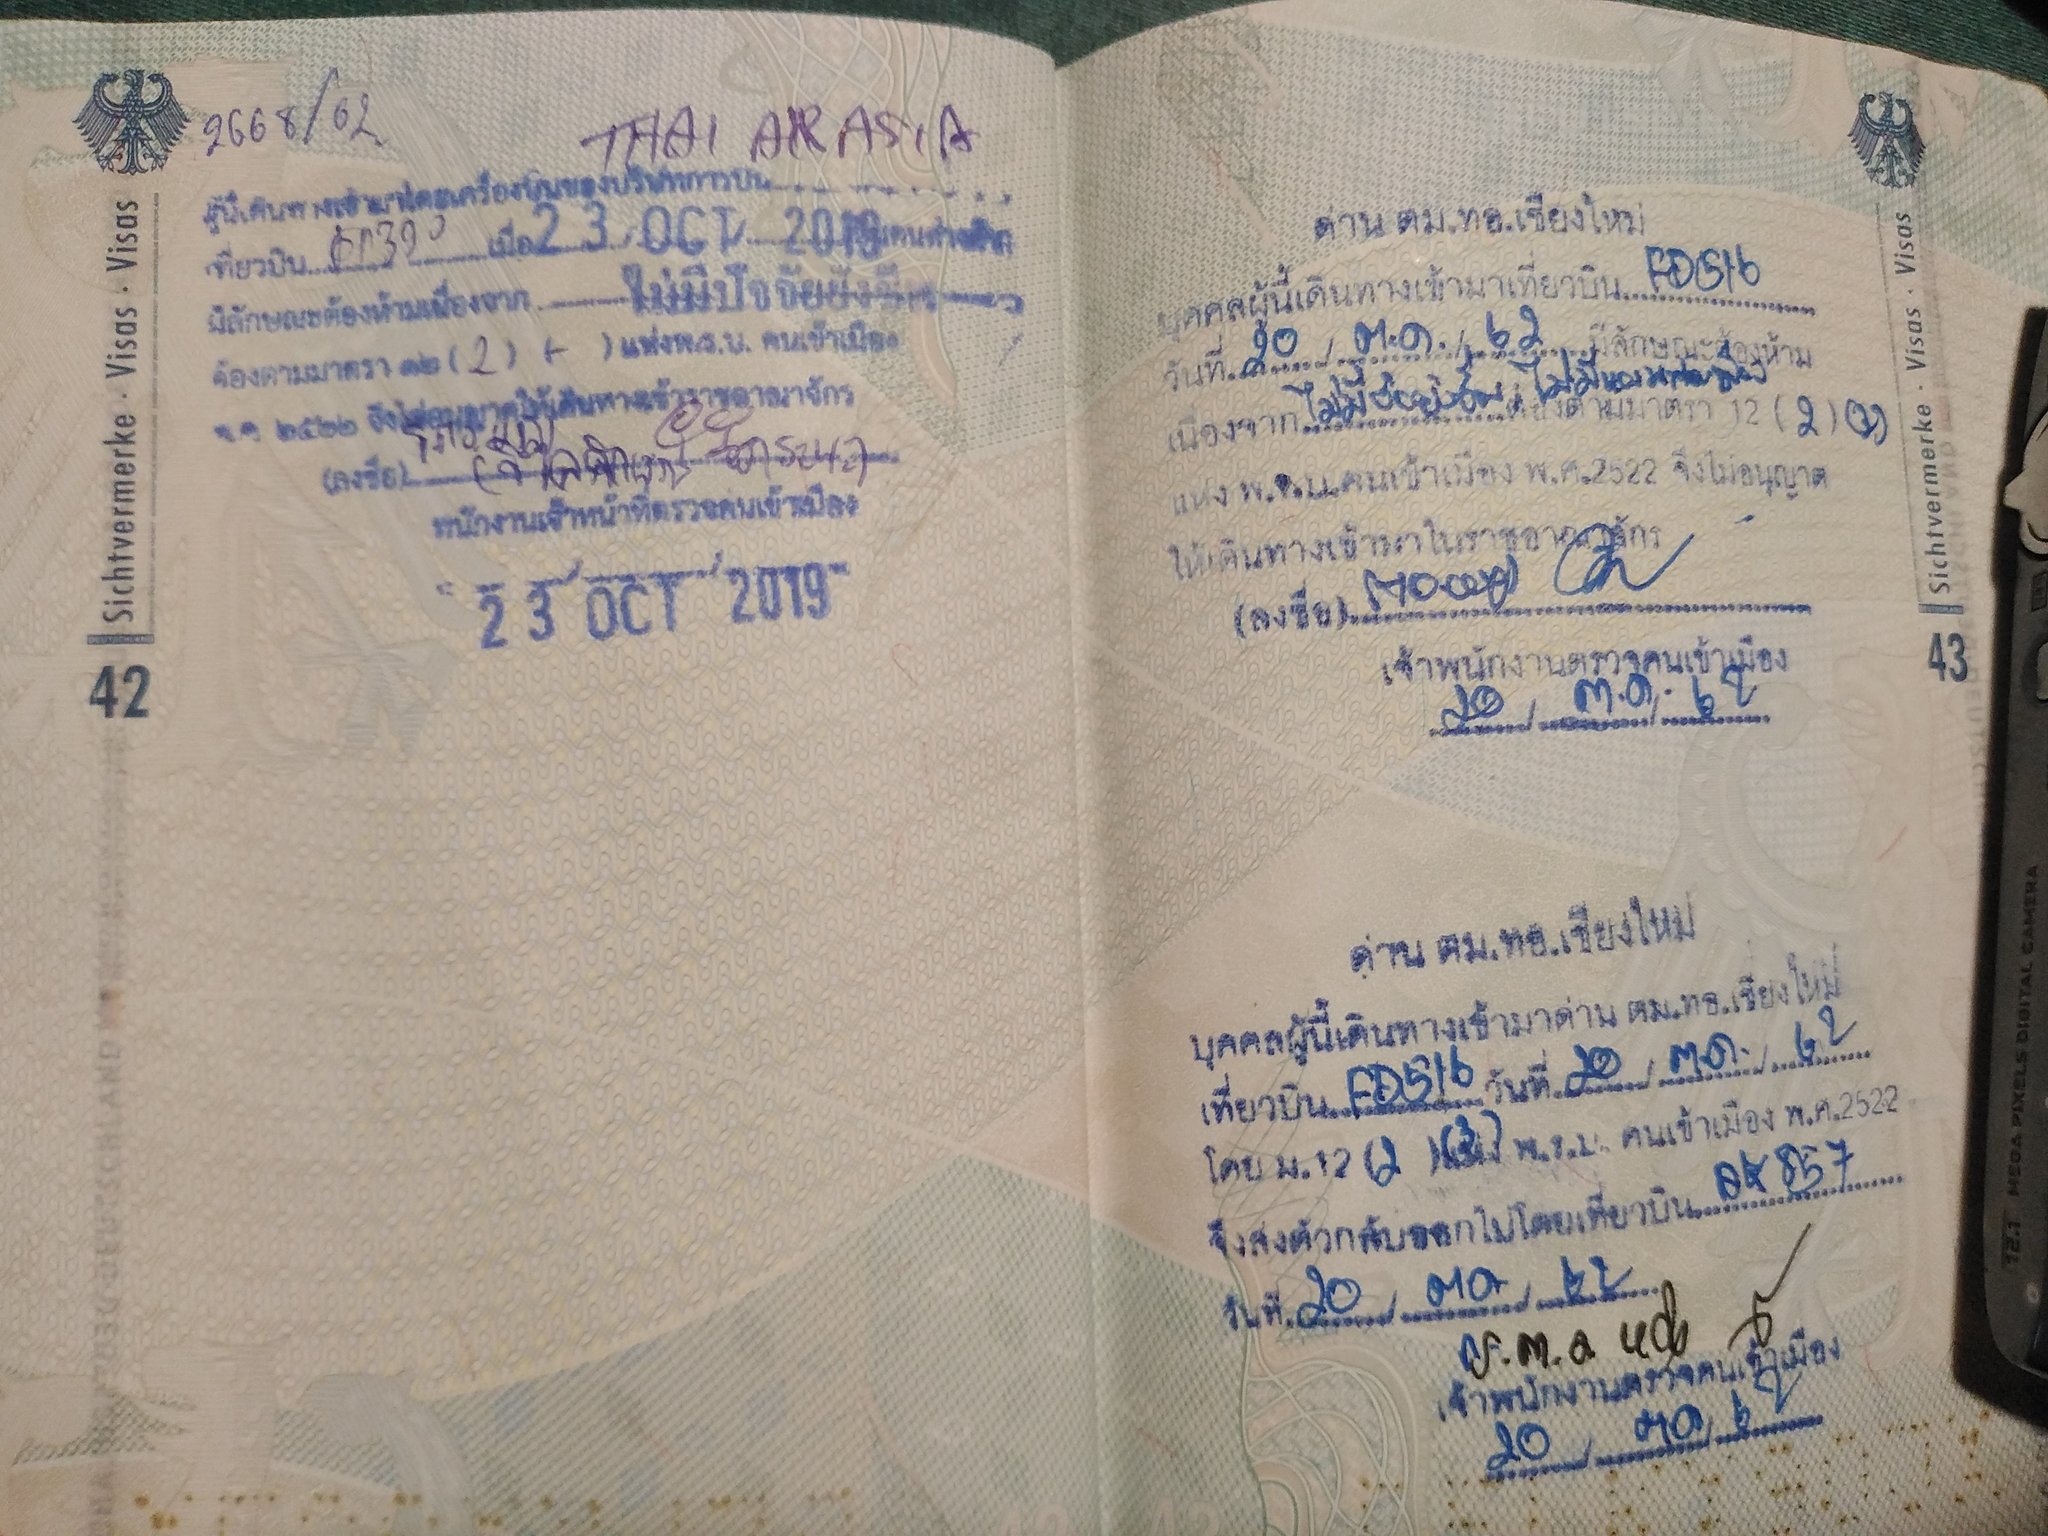 Sichtvermerke · Visas · Visas
42
2668/62
THAI AIR ASIA
ผู้นี้เดินทางเข้ามาโดยเครื่องบินของบริษัทการบิน
เที่ยวบิน เมื่อ 23 OCT 2019
มีลักษณะต้องห้ามเนื่องจาก ไม่มีปัจจัยยังชีพ
ต้องตามมาตรา ๑๒ (2) ( ) แห่งพ.ร.บ. คนเข้าเมือง
พ.ศ ๒๕๒๒ จึงไม่อนุญาตให้เดินทางเข้าราชอาณาจักร
(ลงชื่อ)
พนักงานเจ้าหน้าที่ตรวจคนเข้าเมือง
23 OCT 2019
Sichtvermerke · Visas · Visas
43
ด่าน ตม.ทอ.เชียงใหม่
บุคคลผู้นี้เดินทางเข้ามาเที่ยวบิน FD516
วันที่ 20 / ต.ค. / 62 มีลักษณะต้องห้าม
เนื่องจาก ต้องตามมาตรา 12 (2)
แห่ง พ.ร.บ.คนเข้าเมือง พ.ศ.2522 จึงไม่อนุญาต
ให้เดินทางเข้ามาในราชอาณาจักร
(ลงชื่อ)
เจ้าพนักงานตรวจคนเข้าเมือง
20 / ต.ค. / 62
ด่าน ตม.ทอ.เชียงใหม่
บุคคลผู้นี้เดินทางเข้ามาด่าน ตม.ทอ.เชียงใหม่
เที่ยวบิน FD516 วันที่ 20 / ต.ค. / 62
โดย ม.12 (2) แห่ง พ.ร.บ. คนเข้าเมือง พ.ศ.2522
จึงส่งตัวกลับออกไปโดยเที่ยวบิน AK857
วันที่ 20 / ตค / 62
เจ้าพนักงานตรวจคนเข้าเมือง
20 / ตค / 62
12.1 MEGA PIXELS DIGITAL CAMERA